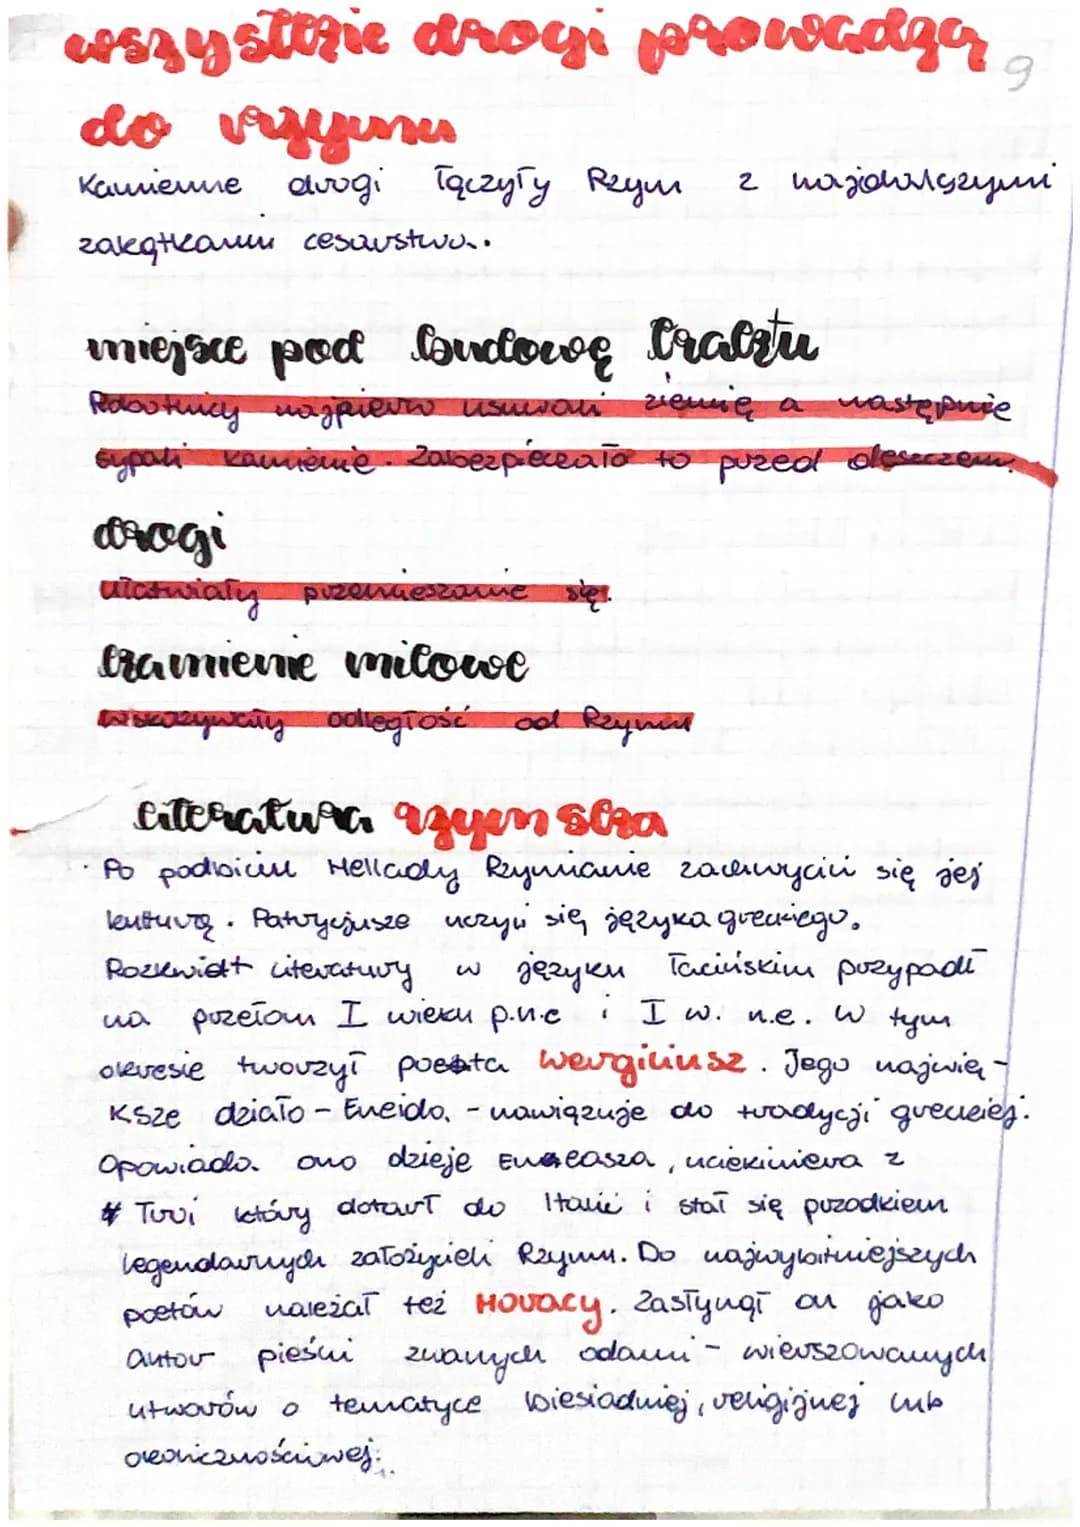 wszystkie drogi prowadzą
9
do rzymu
Kamienne drogi łączyły Rzym z najdalszymi
zakątkami cesarstwa.
miejsce pod budowę traktu
Robotnicy najpierw usuwali ziemię a następnie
sypali kamienie. Zabezpieczało to przed deszczem.
drogi
ułatwiały przemieszanie się.
kamienie milowe
wskazywały odległość od Rzymu
literatura rzymska
Po podbiciu Hellady Rzymianie zachwycili się jej
kulturą. Patrycjusze uczyli się języka greckiego.
Rozkwitt literatury w języku łacińskim przypadł
na przełom I wieku p.n.e i I w. n.e. W tym
okresie tworzył poeta wergiliusz. Jego najwię-
ksze działo - Eneida - nawiązuje do tradycji greckiej.
Opowiada ono dzieje Eneasza, uciekiniera z
Troi który dotarł do Italii i stał się przodkiem
legendarnych założycieli Rzymu. Do najwybitniejszych
poetów należał też Horacy. Zasłynął on jako
autor pieśni zwanych odami - wierszowanych
utworów o tematyce biesiadniej, religijnej lub
okolicznościowej.